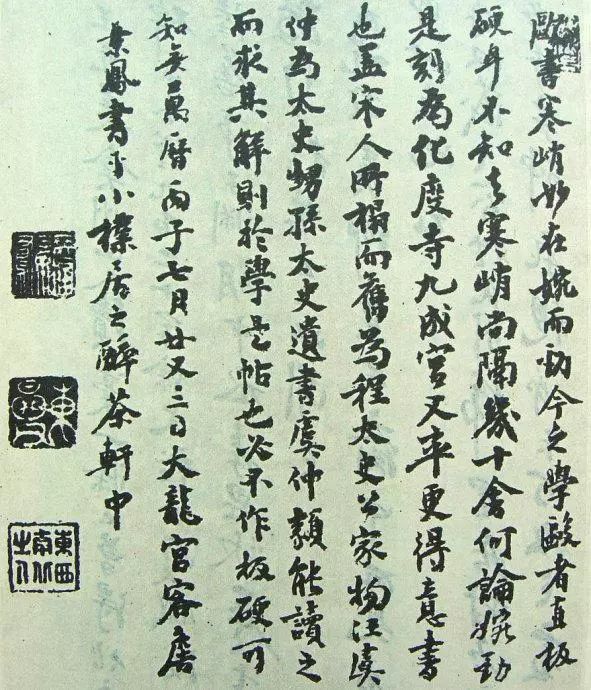 歐書寒峭妙在婉而勁今之學歐者直板
硬耳不知去寒峭尚隔幾十舍何論婉勁
是刻為化度寺九成宮又率更得意書
也盖宋人所搨而舊為程太史公家物汪虞
仲為太史甥孫太史遺書虞仲頗能讀之
而求其解則於學是帖也必不作板硬可
知矣萬曆丙子七月廿又三日大龍宮客詹
景鳳書于小檏居之醉茶軒中
東西南北之人